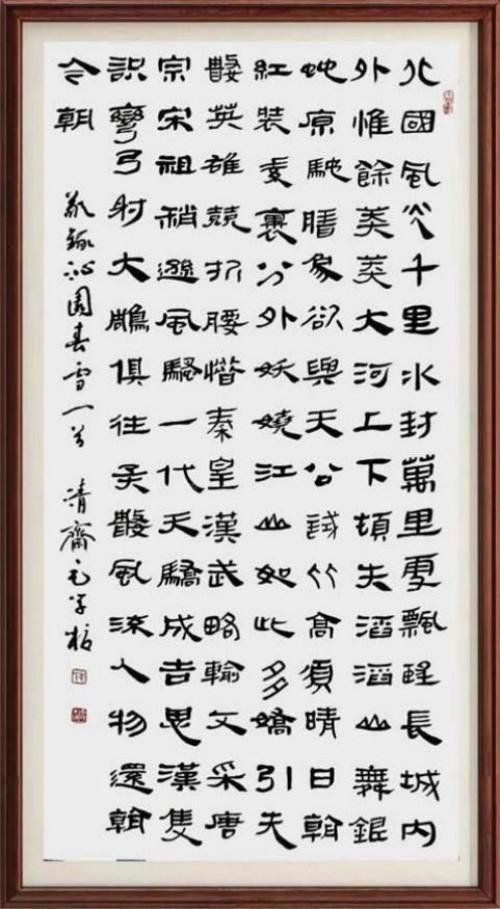 北國風光千里冰封萬里雪飄望長城內
外惟餘莽莽大河上下頓失滔滔山舞銀
蛇原馳臘象欲與天公試比高須晴日看
紅裝素裹分外妖嬈江山如此多嬌引无
數英雄競折腰惜秦皇漢武略輸文采唐
宗宋祖稍遜風騷一代天驕成吉思漢隻
識彎弓射大鵰俱往矣數風流人物還看
今朝
敬錄沁園春雪一首 清齋毛